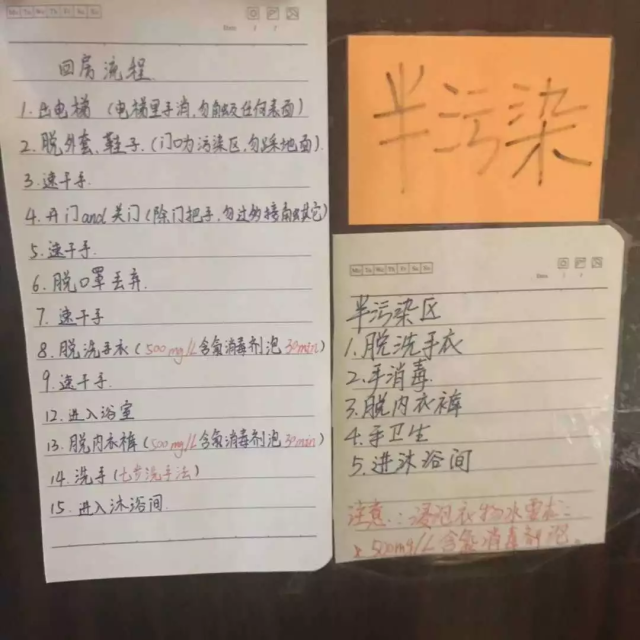 Mo Tu We Th Fr Sa Su
Date
回房流程
1.出电梯（电梯里手消,勿触及任何表面）
2.脱外套、鞋子.（门口为污染区,勿踩地面）
3.速干手.
4.开门and关门（除门把手,勿过多接触其它）
5.速干手
6.脱口罩丢弃.
7.速干手
8.脱洗手衣（500mg/L含氯消毒剂泡30min）
9.速干手.
12.进入浴室
13.脱内衣裤（500mg/L含氯消毒剂泡30min）
14.洗手（七步洗手法）
15.进入沐浴间.
半污染
Mo Tu We Th Fr Sa Su
Date
半污染区
1.脱洗手衣
2.手消毒
3.脱内衣裤
4.手卫生
5.进沐浴间
注意:浸泡衣物
500mg/L含氯消毒剂泡.